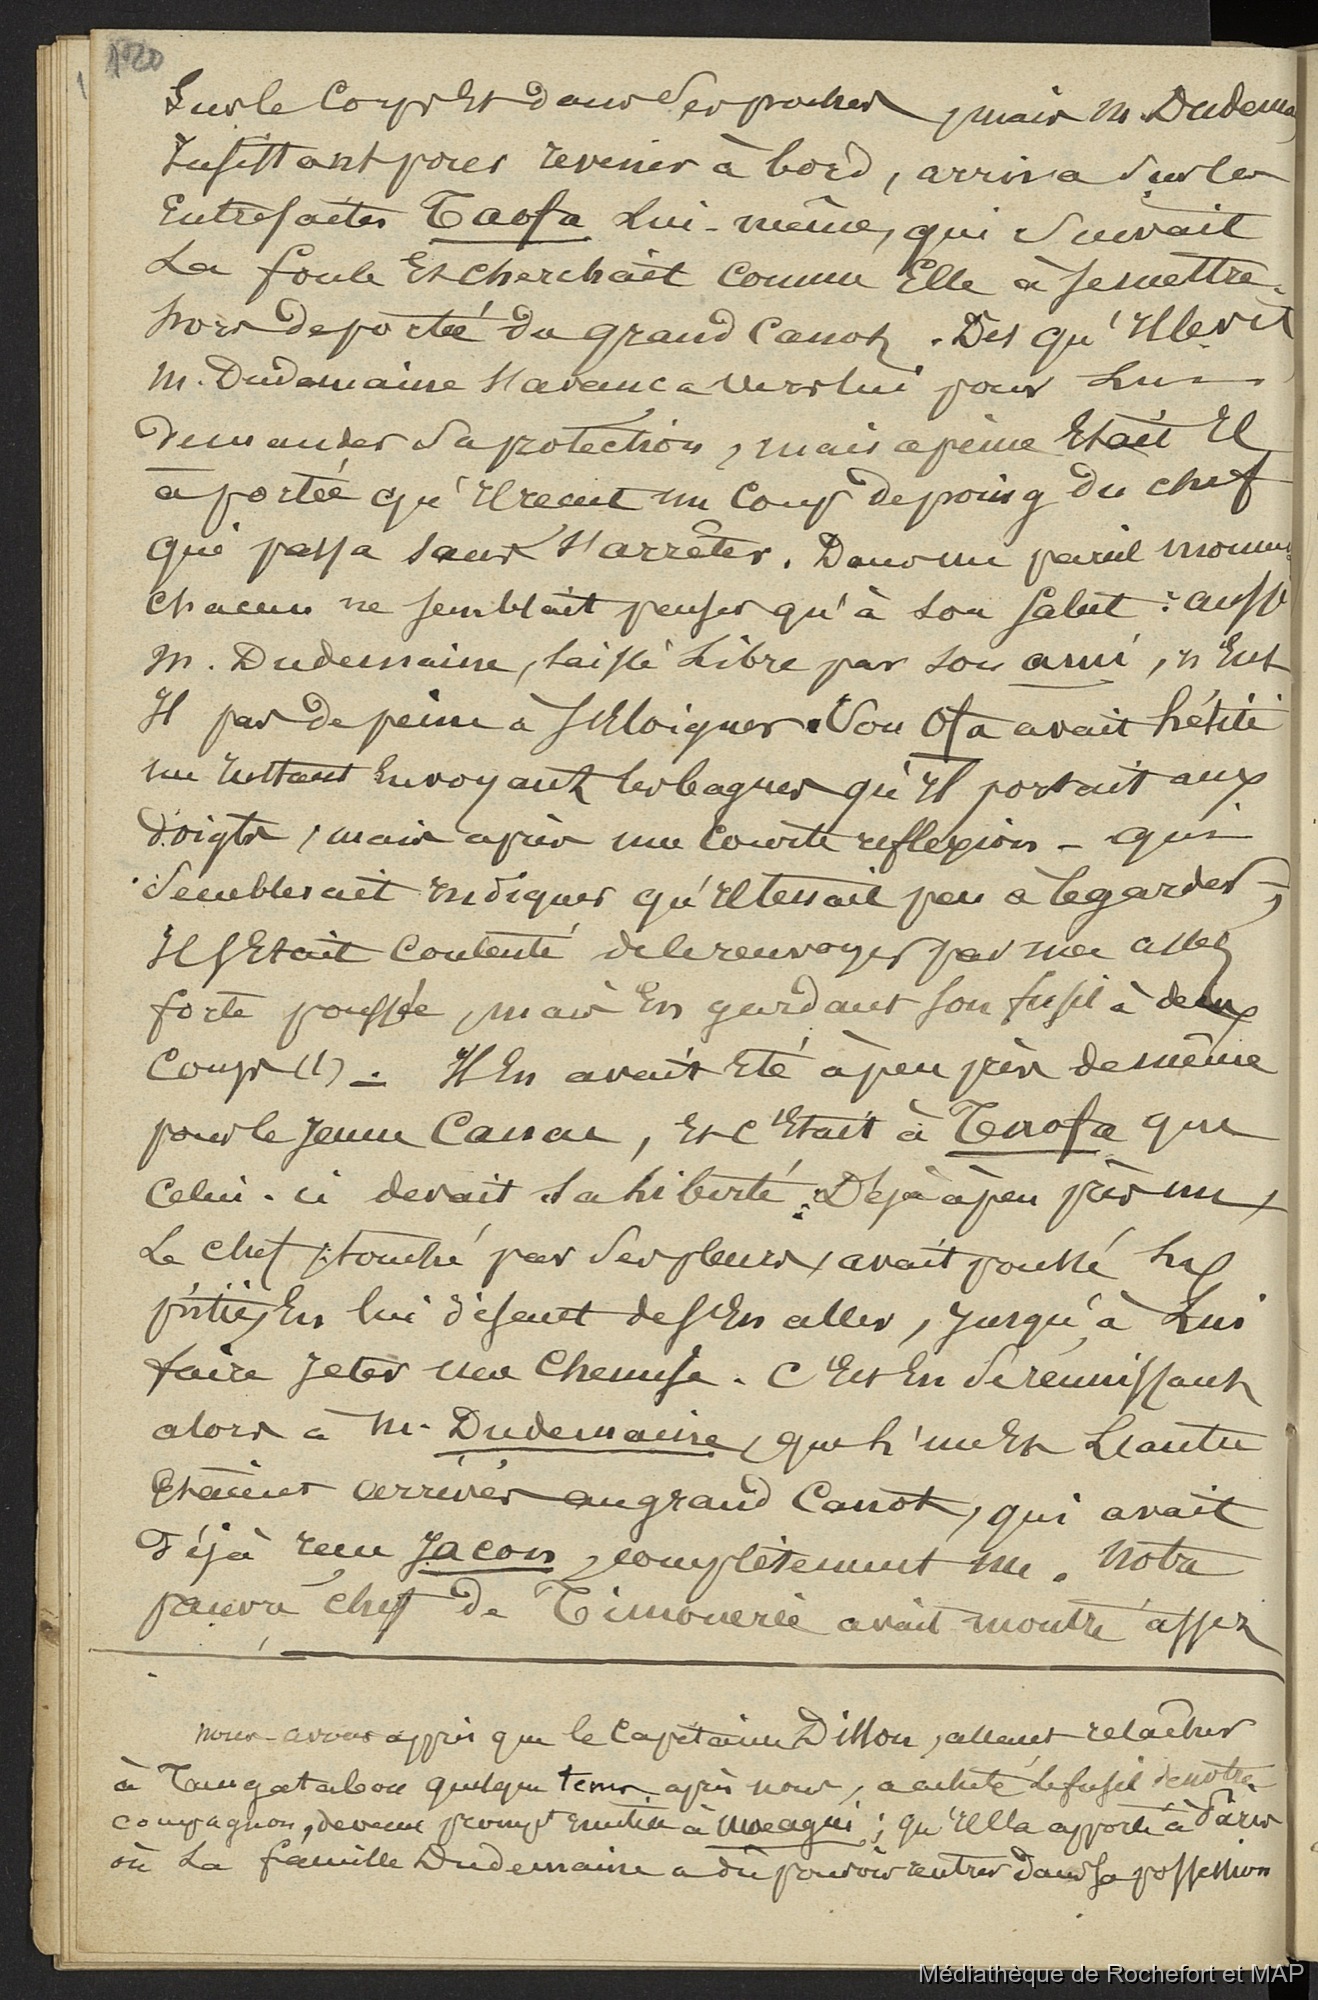 120
Sur le Corps Et dans Ses poches, mais M. Dudema
Insistant pour revenir à bord, arriva Sur les
Entrefaites Taofa Lui-même, qui Suivait
La foule Et Cherchait Comme Elle à Se mettre
hors de portée du grand Canot. Dès qu'Il le vit
M. Dudemaine s'avança vers lui pour Lui
Demander Sa protection, mais a peine Etait Il
à portée qu'Il recut un Coup de poing du chef
qui passa sans s'arrêter. Dans un pareil momen
Chacun ne semblait penser qu'à son salut : aussi
M. Dudemaine, laissé Libre par son ami, n'Eut
Il pas de peine à s'Eloigner. Son Ofa avait hésité
un Instant En voyant les bagues qu'Il portait aux
doigts, mais après une Courte reflexion - qui
Semblerait Indiquer qu'Il tenait peu à le garder -,
Il s'Etait Contenté de le renvoyer par une assez
forte poussée, mais En gardant son fusil à deux
Coups (1). - Il En avait Eté à peu près de même
pour le Jeune Cannac, Et C'Etait à Tenofa que
Celui-ci devait Sa liberté : Déjà à peu près nu,
Le Chef, touché par Ses pleurs, avait poussé La
pitié, En lui disant de s'En aller, Jusqu'à Lui
faire Jeter une Chemise. C'Est En Se réunissant
alors à M. Dudemaine, que L'un Et L'autre
Etaient arrivés au grand Canot, qui avait
Déjà recu Jacon, complètement nu. Notre
pauvre chef de Timonerie avait montré assez
nous avons appris que le Capitaine Dillon, allant relâcher
à Tongatabou quelque tems après nous, a acheté le fusil de notre
compagnon, devenu prompt inutile à ; qu'Il l'a apporté à Paris
où La famille Dudemaine a dû pouvoir rentrer dans sa possession
Médiathèque de Rochefort et MAP